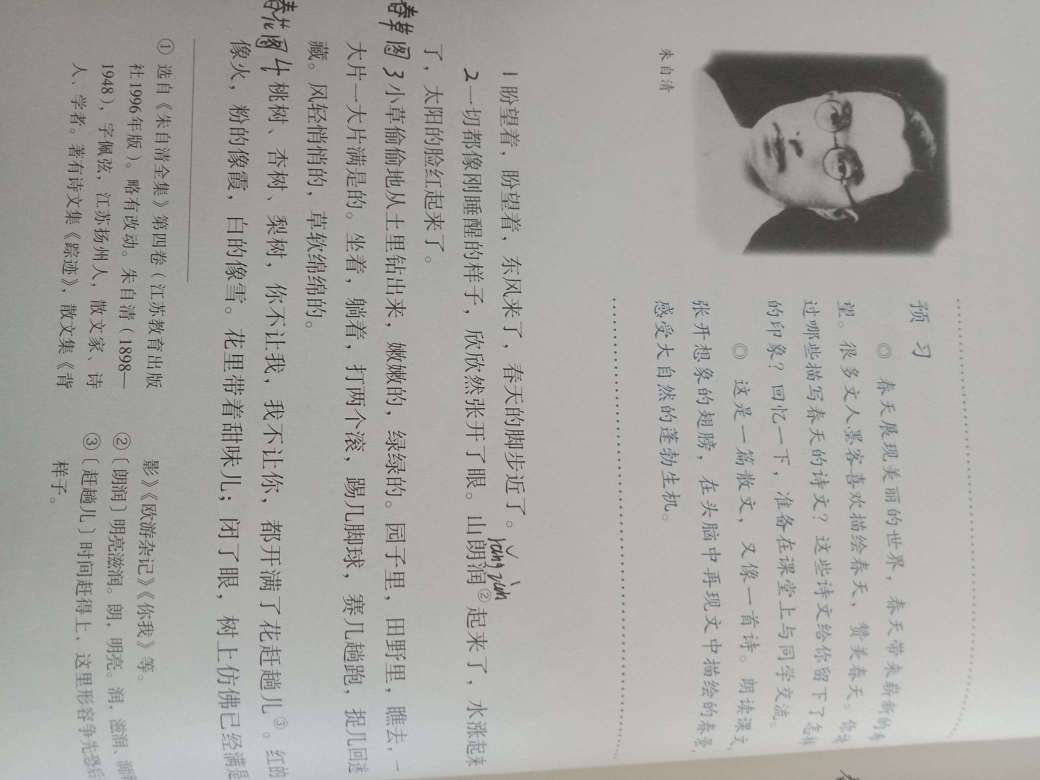 朱自清
预习
◎ 春天展现美丽的世界，春天带来崭新的希
望。很多文人墨客喜欢描绘春天，赞美春天。你读
过哪些描写春天的诗文？这些诗文给你留下了怎样
的印象？回忆一下，准备在课堂上与同学交流。
◎ 这是一篇散文，又像一首诗。朗读课文，
张开想象的翅膀，在头脑中再现文中描绘的春景，
感受大自然的蓬勃生机。
1 盼望着，盼望着，东风来了，春天的脚步近了。
2 一切都像刚睡醒的样子，欣欣然张开了眼。山朗润②起来了，水涨起来
了，太阳的脸红起来了。
春草图 3 小草偷偷地从土里钻出来，嫩嫩的，绿绿的。园子里，田野里，瞧去，一
大片一大片满是的。坐着，躺着，打两个滚，踢几脚球，赛几趟跑，捉几回迷
藏。风轻悄悄的，草软绵绵的。
春花图 4 桃树、杏树、梨树，你不让我，我不让你，都开满了花赶趟儿③。红的
像火，粉的像霞，白的像雪。花里带着甜味儿；闭了眼，树上仿佛已经满是
① 选自《朱自清全集》第四卷（江苏教育出版
社1996年版）。略有改动。朱自清（1898—
1948），字佩弦，江苏扬州人，散文家、诗
人、学者。著有诗文集《踪迹》，散文集《背
影》《欧游杂记》《你我》等。
②〔朗润〕明亮滋润。朗，明亮。润，滋润、
③〔赶趟儿〕时间赶得上，这里形容争先恐后
样子。